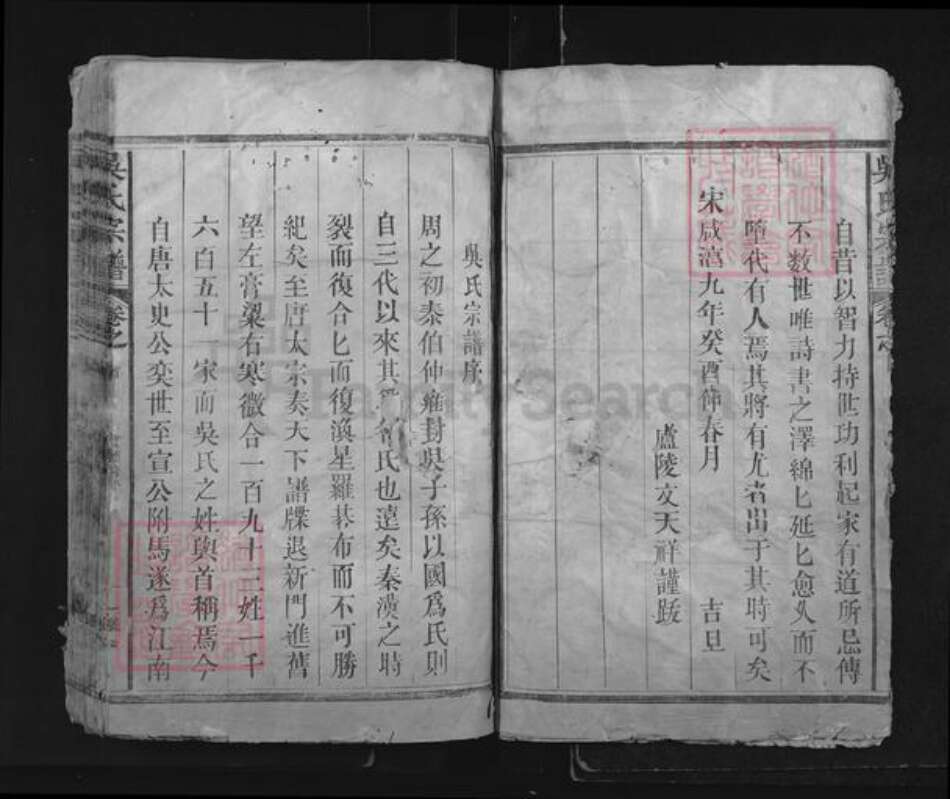 自昔以智力持世功利起家有道所忌傳
不数世唯詩書之澤綿匕延匕愈久而不
墮代有人焉其將有尤者出于其時可矣
宋咸淳九年癸酉仲春月 吉旦
廬陵文天祥謹跋
吳氏宗譜序
周之初泰伯仲雍封吳子孫以國爲氏則
自三代以來其爲氏也遠矣秦漢之時
裂而復合匕而復渙星羅棊布而不可勝
紀矣至唐太宗奏天下譜牒退新門進舊
望左膏粱右寒微合一百九十三姓一千
六百五十一家而吳氏之姓與首稱焉今
自唐太史公奕世至宣公附馬遂爲江南
吳氏宗譜 卷之